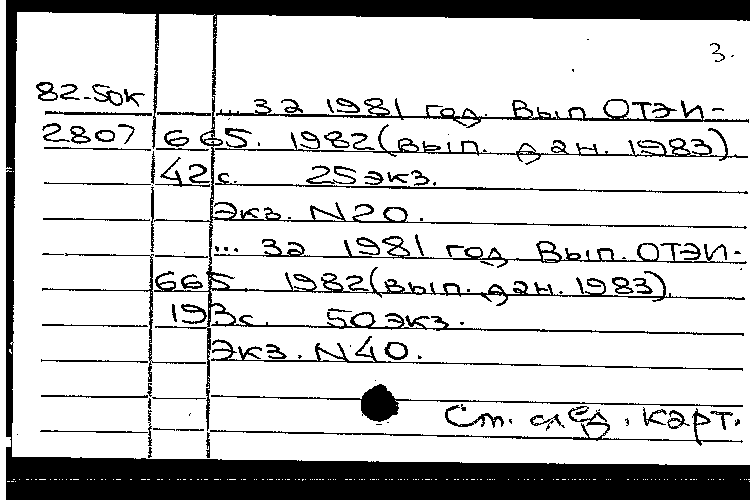 3.
82-50К ... за 1981 год. Вып ОТЭИ-
2807 665. 1982(вып. дан. 1983)
42с. 25экз.
Экз. N20.
... за 1981 год. Вып. ОТЭИ-
665. 1982(вып. дан. 1983).
193с. 50экз.
Экз. N40.
См. след. карт.